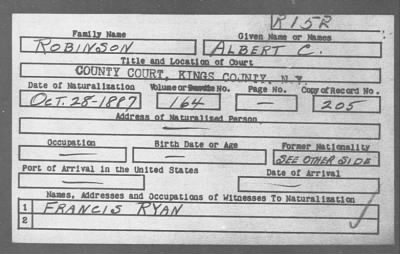 R152
Family Name Given Name or Names
ROBINSON ALBERT C.
Title and Location of Court
COUNTY COURT, KINGS COUNTY, N.Y.
Date of Naturalization Volume or Bundle No. Page No. Copy of Record No.
OCT. 28-1887 164 — 205
Address of Naturalized Person
—
Occupation Birth Date or Age Former Nationality
— — SEE OTHER SIDE
Port of Arrival in the United States Date of Arrival
— —
Names, Addresses and Occupations of Witnesses To Naturalization
1 FRANCIS RYAN
2